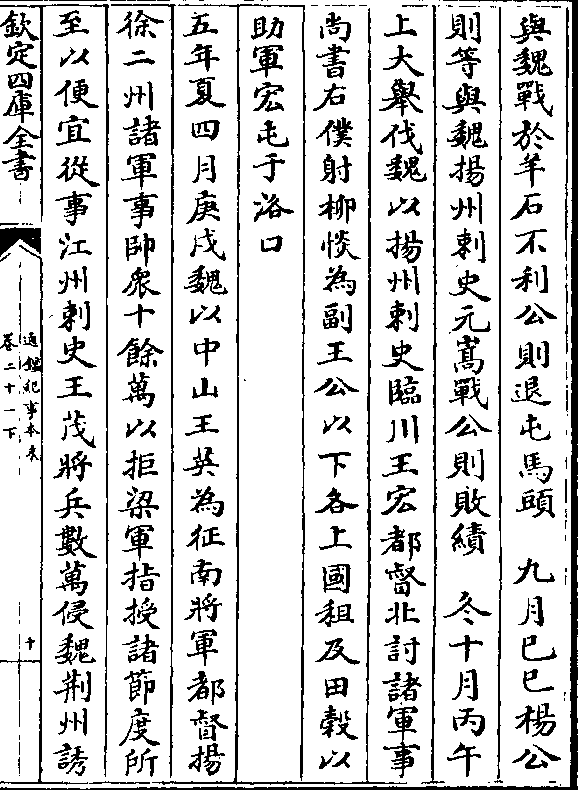 與魏戰於羊石不利公則退屯馬頭　九月己巳楊公
則等與魏揚州刺史元嵩戰公則敗績　冬十月丙午
上大舉伐魏以揚州刺史臨川王宏都督北討諸軍事
尚書右僕射柳惔為副王公以下各上國租及田穀以
助軍宏屯于洛口
五年夏四月庚戌魏以中山王英為征南將軍都督揚
徐二州諸軍事帥衆十餘萬以拒梁軍指授諸節度所
至以便宜從事江州刺史王茂將兵數萬侵魏荆州誘
欽定四庫全書
通鑑紀事本末
卷二十一下
十